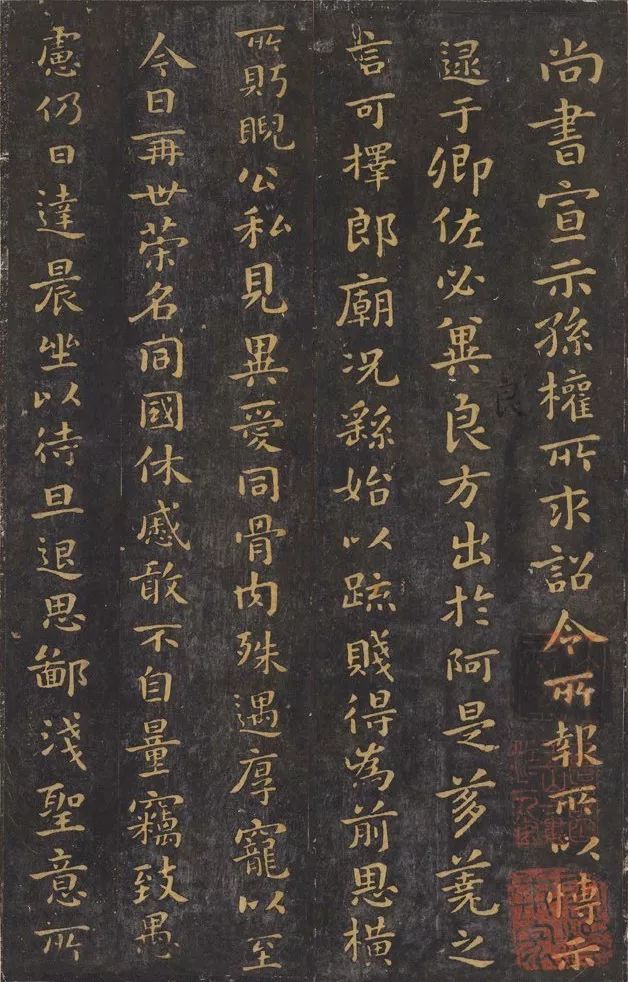 尚書宣示孫權所求詔令所報所以博示
逮于卿佐必冀良方出於阿是芻蕘之
言可擇郎廟況繇始以疏賤得為前恩橫
所眄睨公私見異愛同骨肉殊遇厚寵以至
今日再世榮名同國休慼敢不自量竊致愚
慮仍日達晨坐以待旦退思鄙淺聖意所
良